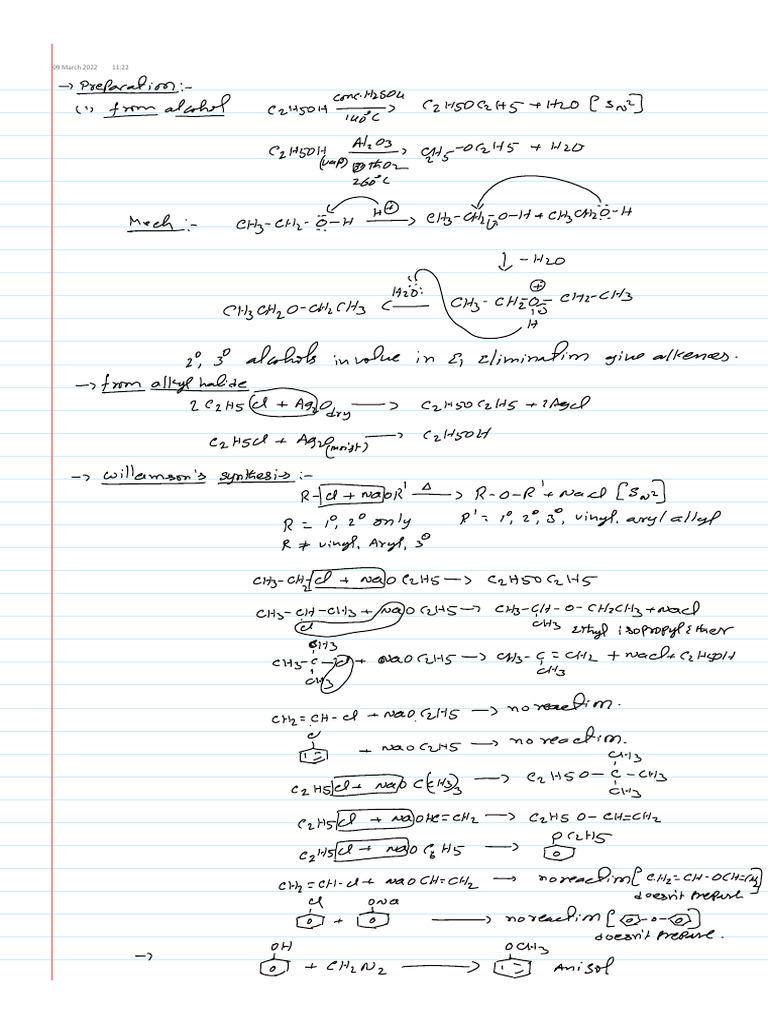 09 March 2022 11:22
→ Preparation:-
(1) from alcohol C2H5OH conc.H2SO4 → 140°C C2H5OC2H5 + H2O [SN2]
C2H5OH (vap) Al2O3 → 260°C C2H5-OC2H5 + H2O
Mech:- CH3-CH2-O-H H⊕ → CH3-CH2-O-H + CH3CH2O-H
↓ -H2O
CH3CH2O-CH2CH3 H2O: CH3-CH2-O-CH2-CH3
⊕
H
2°, 3° alcohols involve in E1 Elimination give alkenes.
→ from alkyl halide
2 C2H5Cl + Ag2O dry → C2H5OC2H5 + 2AgCl
C2H5Cl + Ag2O (moist) → C2H5OH
→ Willamson's synthesis:-
R-Cl + NaOR' Δ → R-O-R' + NaCl [SN2]
R = 1°, 2° only R' = 1°, 2°, 3°, vinyl, aryl allyl
R ≠ vinyl, Aryl, 3°
CH3-CH2-Cl + NaOC2H5 → C2H5OC2H5
CH3-CH-CH3 + NaOC2H5 → CH3-CH-O-CH2CH3 + NaCl
Cl CH3 Ethyl isopropyl Ether
CH3
CH3-C-Cl + NaOC2H5 → CH3-C=CH2 + NaCl + C2H5OH
CH3 CH3
CH2=CH-Cl + NaOC2H5 → no reaction.
Cl
+ NaOC2H5 → no reaction.
CH3
C2H5Cl + NaOC(CH3)3 → C2H5O-C-CH3
CH3
C2H5Cl + NaOHC=CH2 → C2H5O-CH=CH2
OC2H5
C2H5Cl + NaOC6H5 →
CH2=CH-Cl + NaOCH=CH2 → no reaction [CH2=CH-OCH=CH2]
doesn't prepare
Cl ONa
+ → no reaction [-O-]
doesn't prepare.
→ OH OCH3
+ CH2N2 → Anisol